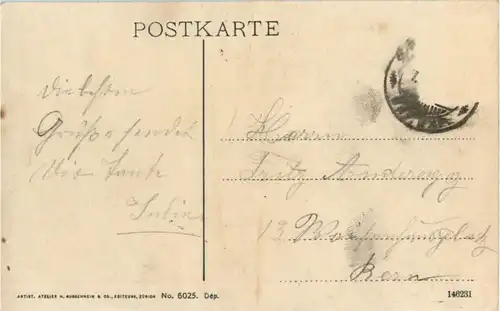 POSTKARTE
Die besten
Grüsse sendet
Die Tante
Herrn
Fritz
13 Waisenhausplatz
Bern
ARTIST. ATELIER H. GUGGENHEIM & CO., EDITEURS, ZÜRICH No. 6025. Dép.
146231